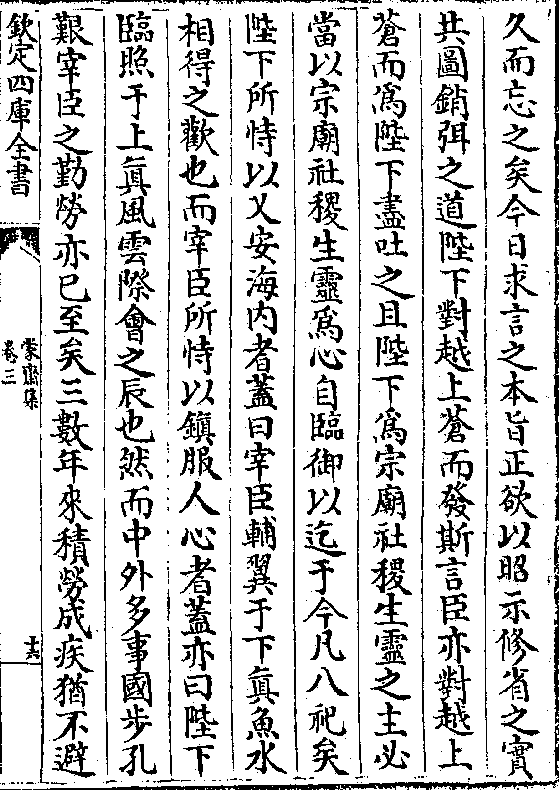 久而忘之矣今日求言之本旨正欲以昭示修省之實
共圖銷弭之道陛下對越上蒼而發斯言臣亦對越上
蒼而為陛下盡吐之且陛下為宗廟社稷生靈之主必
當以宗廟社稷生靈為心自臨御以迄于今凡八祀矣
陛下所恃以乂安海内者蓋曰宰臣輔翼于下真魚水
相得之歡也而宰臣所恃以鎮服人心者蓋亦曰陛下
臨照于上真風雲際會之辰也然而中外多事國步孔
艱宰臣之勤勞亦已至矣三數年來積勞成疾猶不避
欽定四庫全書
蒙齋集
卷三
十六